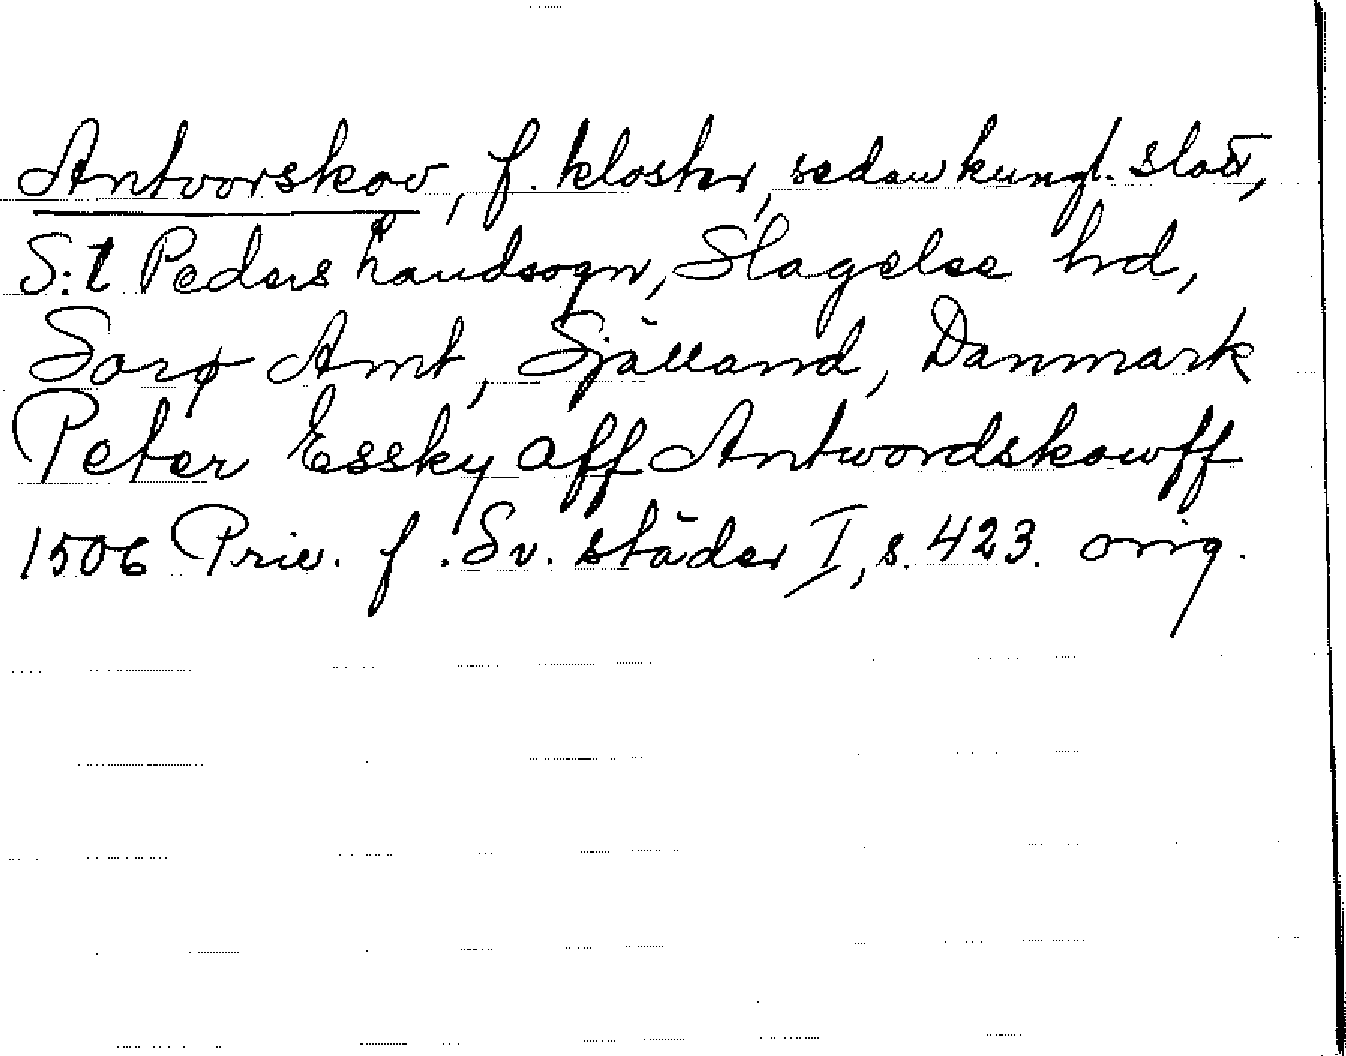 Antvorskov, f. kloster, sedan kungl. slott,
S:t Peders Landsogn, Slagelse hrd,
Sorø Amt, Själland, Danmark
Peter Essky aff Antwordskowff
1506 Priv. f. Sv. städer I, s. 423. orig.